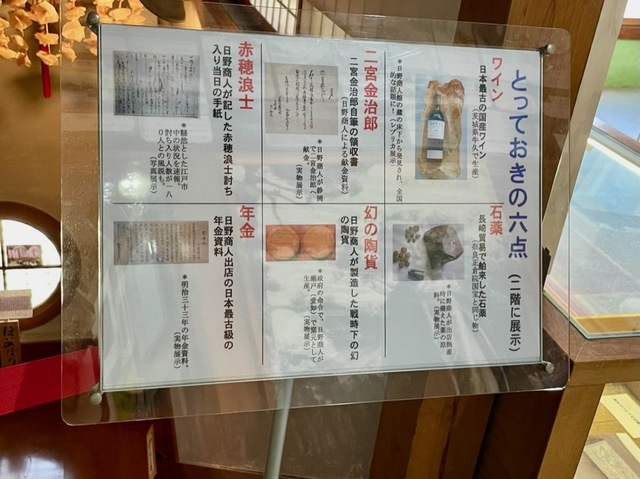 とっておきの六点（二階に展示）
ワイン
日本最古の国産ワイン
（茨城県牛久で生産）
＊日野商人館の蔵の床下から発見され、全国
的な話題に！（レプリカ展示）
石薬
長崎貿易で舶来した石薬
（奈良正倉院国宝と同じ物）
＊日野商人が出店倒産
時に備えた薬の原
料。（実物展示）
二宮金治郎
二宮金治郎自筆の領収書
（日野商人による献金資料）
＊日野商人が静岡
で二宮金治郎へ
献金。（実物展示）
幻の陶貨
日野商人が製造した戦時下の幻
の陶貨
＊政府の命令で、日野商人が
瀬戸（愛知）で窯元として
生産。（実物展示）
赤穂浪士
日野商人が記した赤穂浪士討ち
入り当日の手紙
＊騒然とした江戸市
中の状況を速報。
討ち入り人数が一八
〇人との風説も。
（写真展示）
年金
日野商人出店の日本最古級の
年金資料
＊明治三十三年の年金資料。
（実物展示）